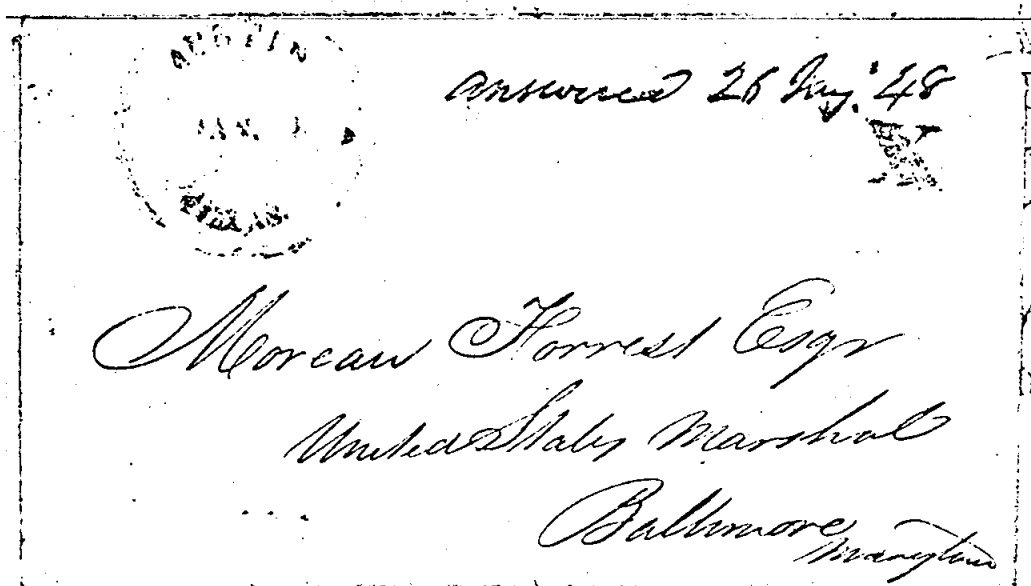 AUSTIN
JAN.
TEXAS.
answered 26 Jany. '48
X
Moreau Forrest Esqr
United States Marshal
Baltimore
Maryland